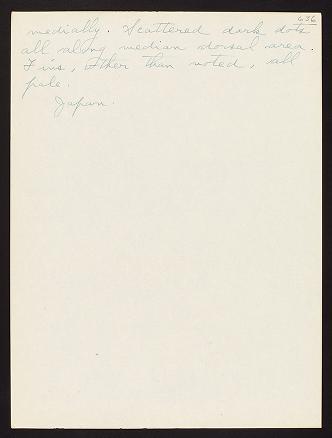 636
medially. Scattered dark dots
all along median dorsal area.
Fins, other than noted, all
pale.
Japan.